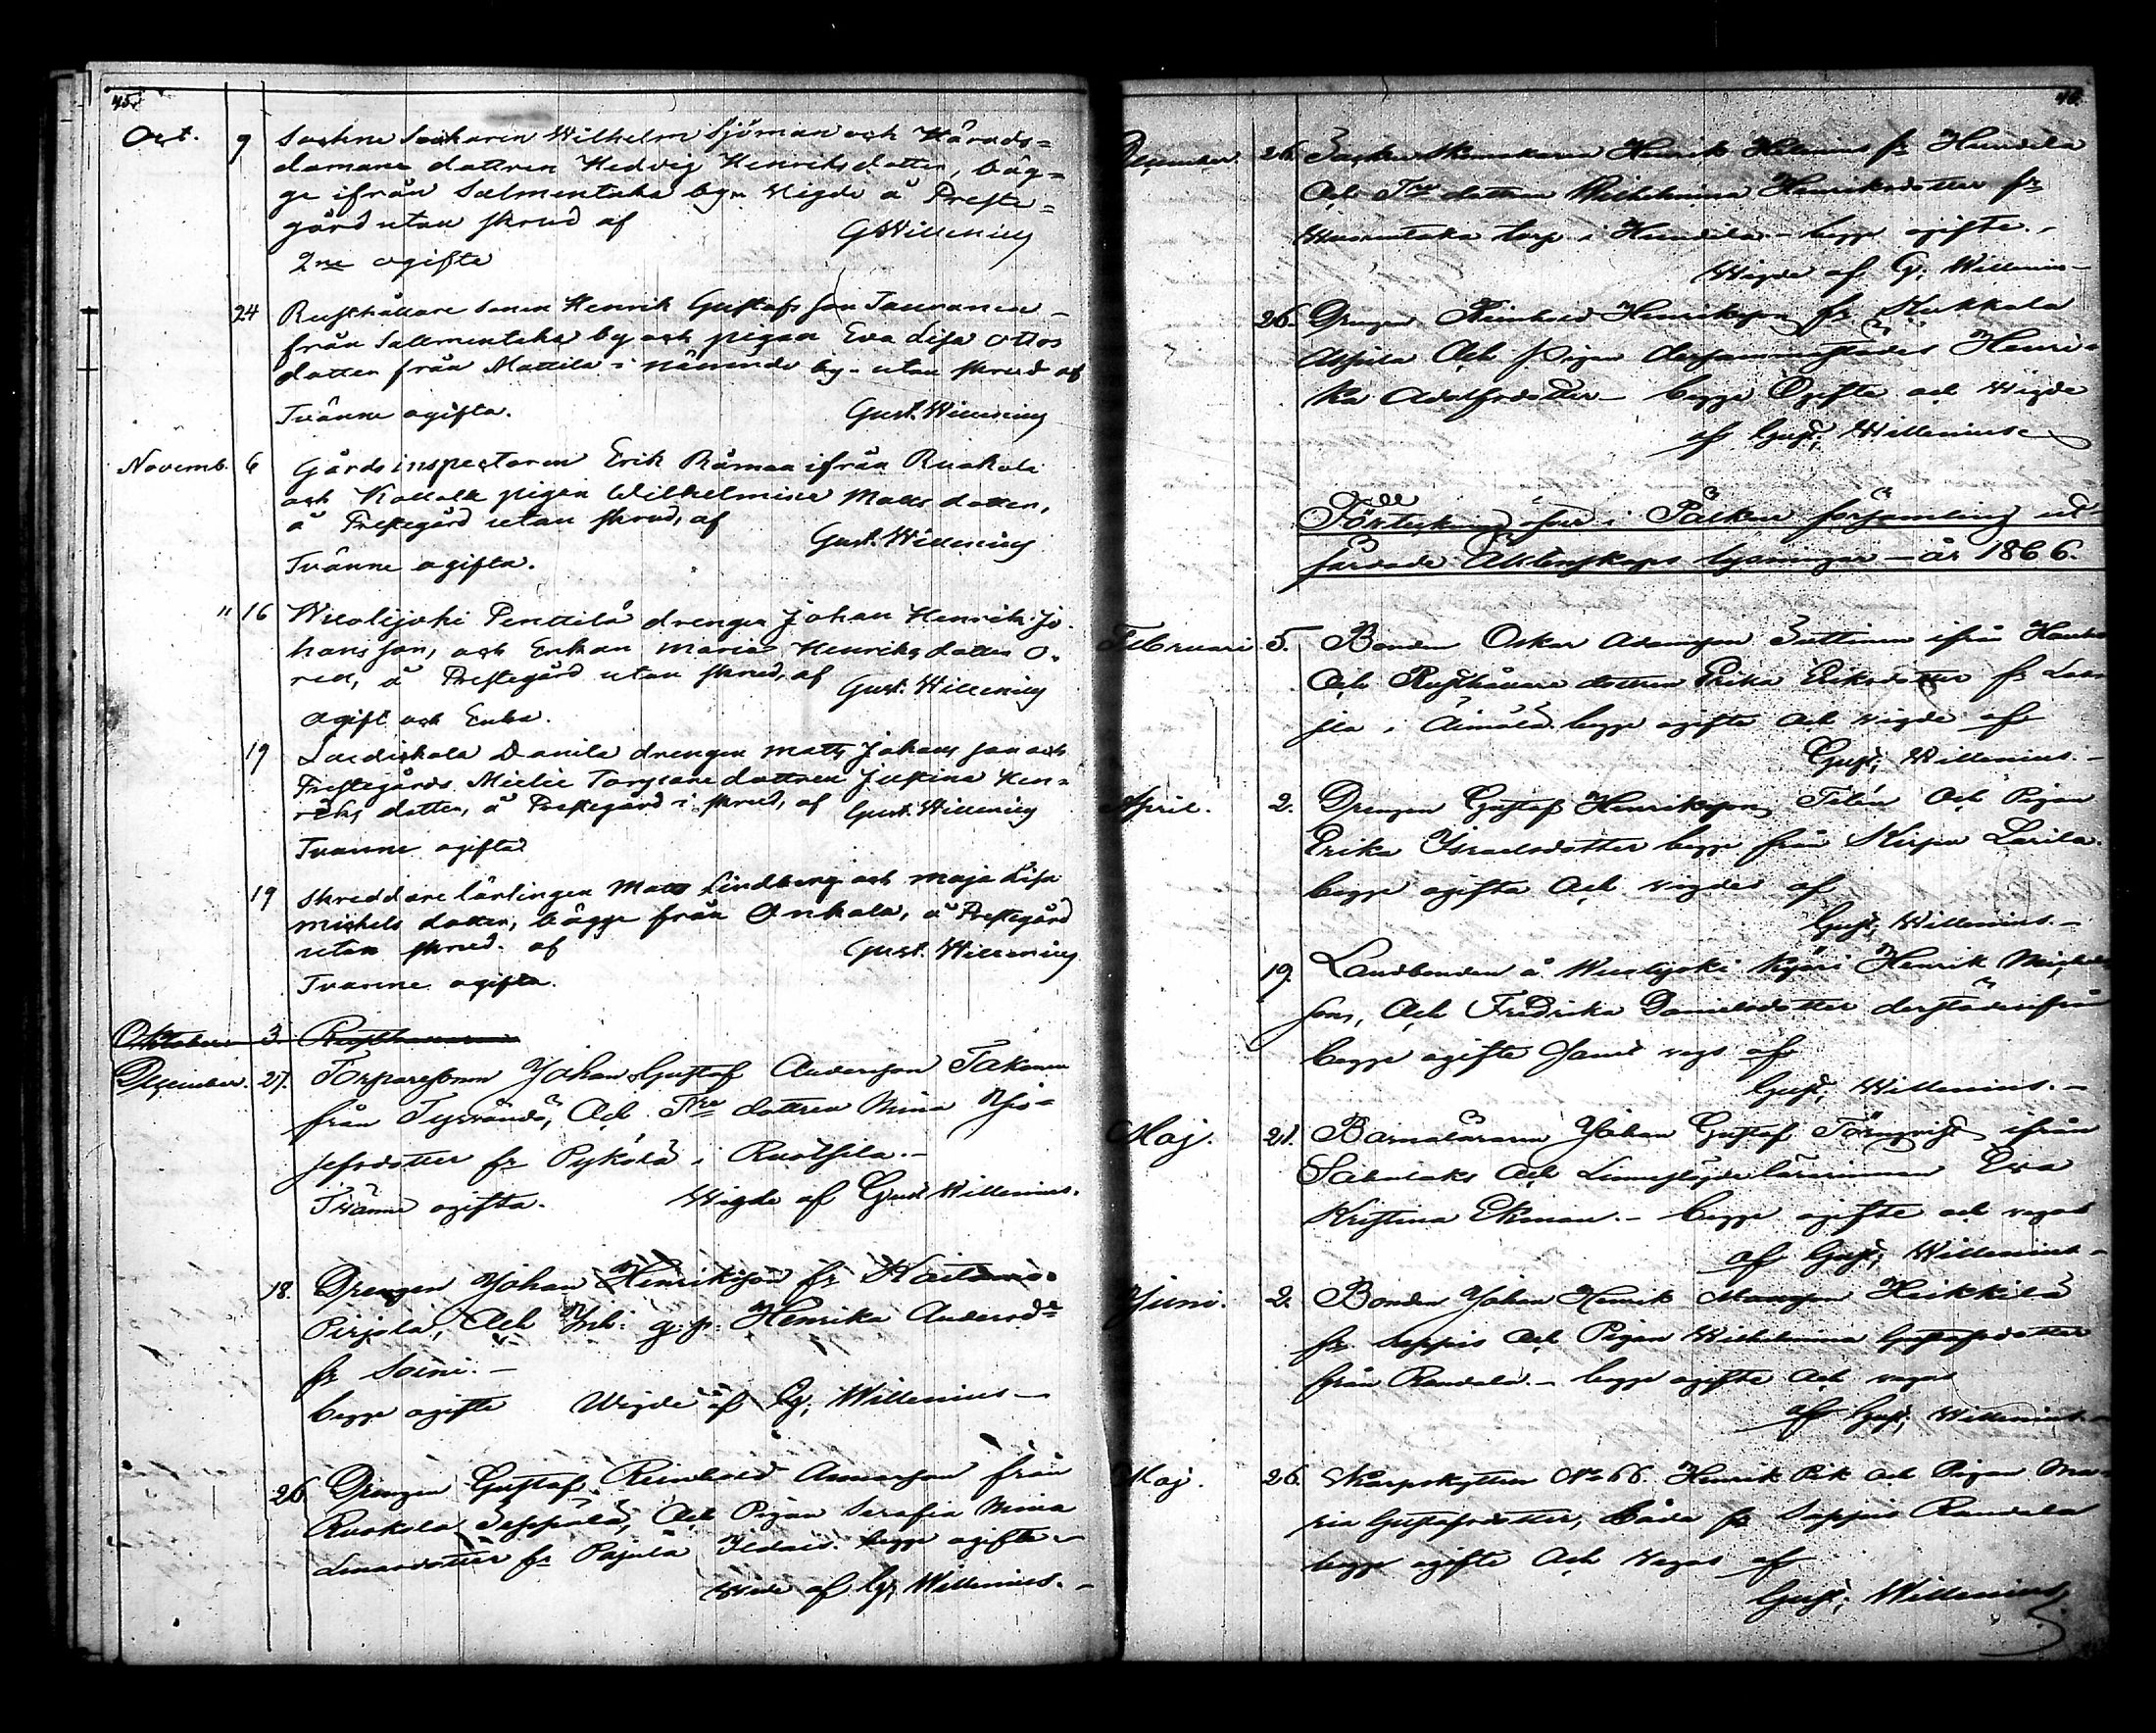 45.
Oct. 9 Sockne Skräddaren Wilhelm Sjöman och Härads=
domare dottren Hedvig Henricksdotter, bäg=
ge ifrån Salmentaka by. Vigde å Preste=
gård utan skrud af GWillenius
2ne ogifte
24 Rusthållare sonen Henrik Gustafsson Tauranen
från Salmentaka by och pigan Eva Lisa Ottos
dotter från Mattila i nämnde by - utan skrud af
Tvänne ogifta. Gust. Willenius
Novemb. 6 Gårds inspectoren Erik Råman ifrån Ruokola
och pigan Wilhelmina Matts dotter,
å Prestegård utan skrud, af
Gust. Willenius
Tvänne ogifta.
" 16 Penttilä drengen Johan Henrik Jo-
hansson, och Enkan Maria Henriks dotter O.
ren, å Prestegård utan skrud, af Gust. Willenius
Ogift och Enka.
19 Danila drengen Matts Johans son och
Prestegårds Torpare dottren Justina Hen=
riks dotter, å Prestegård i skrud, af Gust. Willenius
Tvänne ogifta
19 Skreddare lärlingen Matts Lindberg och Maja Lisa
Michels dotter, bägge från Onkala, å Prestegård
utan skrud. af Gust. Willenius
Tvänne ogifta.
Oktober 3. Rusthållaren
December. 27. Torparesonen Johan Gustaf Andersson Takanen
från Tyrvändö, Och Tre dottren Mina Jo-
sefsdotter fr Pykälä i Ruotsila.-
Tvänne ogifta. Wigde af Gust Willenius.
18. Drengen Johan Henriksson fr
Pirjola, Och Inh. g. p. Henrika Andersdr
fr Soini.-
begge ogifte Wigde af G; Willenius-
26 Drengen Gustaf Reinhold Annasson från
Ruokola Seppälä, Och Pigan Serafia Mina
Linasdotter fr Pajula begge ogifte.-
Wigde af G; Willenius.-
46.
December. 26. Henrik fr Hundila
Och Tre dottren Wilhelmina Henriksdotter fr
torp i Hundila - begge ogifte.-
Wigde af G. Willenius-
26. Drengen Reinhold Henriksson fr Kukkola
Och Pigan dersammastädes Henri-
ka Adolfsdotter - begge Ogifte och Wigde
af Gust; Willenius
Förteckning öfver i Pälkäne församling ut
färdade Äktenskaps lysningar - år 1866.
Februari 5. Bonden Oskar Adamsson ifrån
Och Rusthållare dottren Erika Eriksdotter fr
sla i Äimälä begge ogifte Och vigde af
Gust; Willenius.-
April. 2. Drengen Gustaf Henriksson Tilén Och Pigan
Erika Israelsdotter begge från Kirpu Larila.
begge ogifta Och vigdes af
Gust; Willenius.-
19. Landbonden å Kyöri Henrik Michels
son, Och Fredrika Danielsdotter derstädesifrån
begge ogifte samt vigs af
Gust; Willenius.-
Maj. 21. Barnaläraren Johan Gustaf Törnqvist ifrån
Och lärarinnan Eva
Kristina Ekman.- begge ogifte och vigas
af Gust; Willenius-
Juni. 2. Bonden Johan Henrik Heikkilä
fr Sappis Och Pigan Wilhelmina Gustafsdotter
från Randala.- begge ogifte Och vigas
af Gust; Willenius.-
Maj. 26. Skarpskytten No 66. Henrik Pik Och Pigan Ma-
ria Gustafsdotter, båda fr Sappis Randala
begge ogifte Och Vigas af
Gust; Willenius